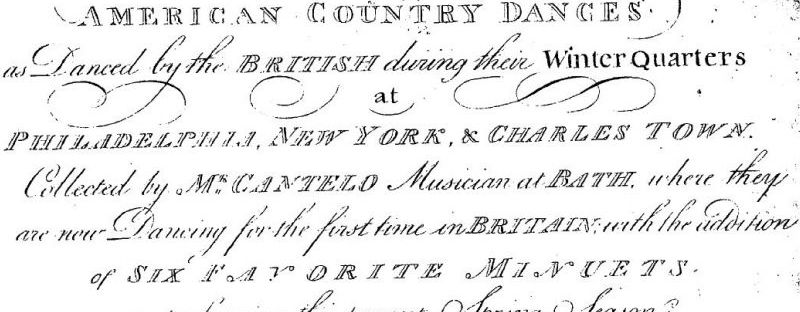 AMERICAN COUNTRY DANCES
as Danced by the BRITISH during their Winter Quarters
at
PHILADELPHIA, NEW YORK, & CHARLES TOWN.
Collected by Mr. CANTELO Musician at BATH, where they
are now Dancing for the first time in BRITAIN; with the addition
of SIX FAVORITE MINUETS.
this present Spring Season